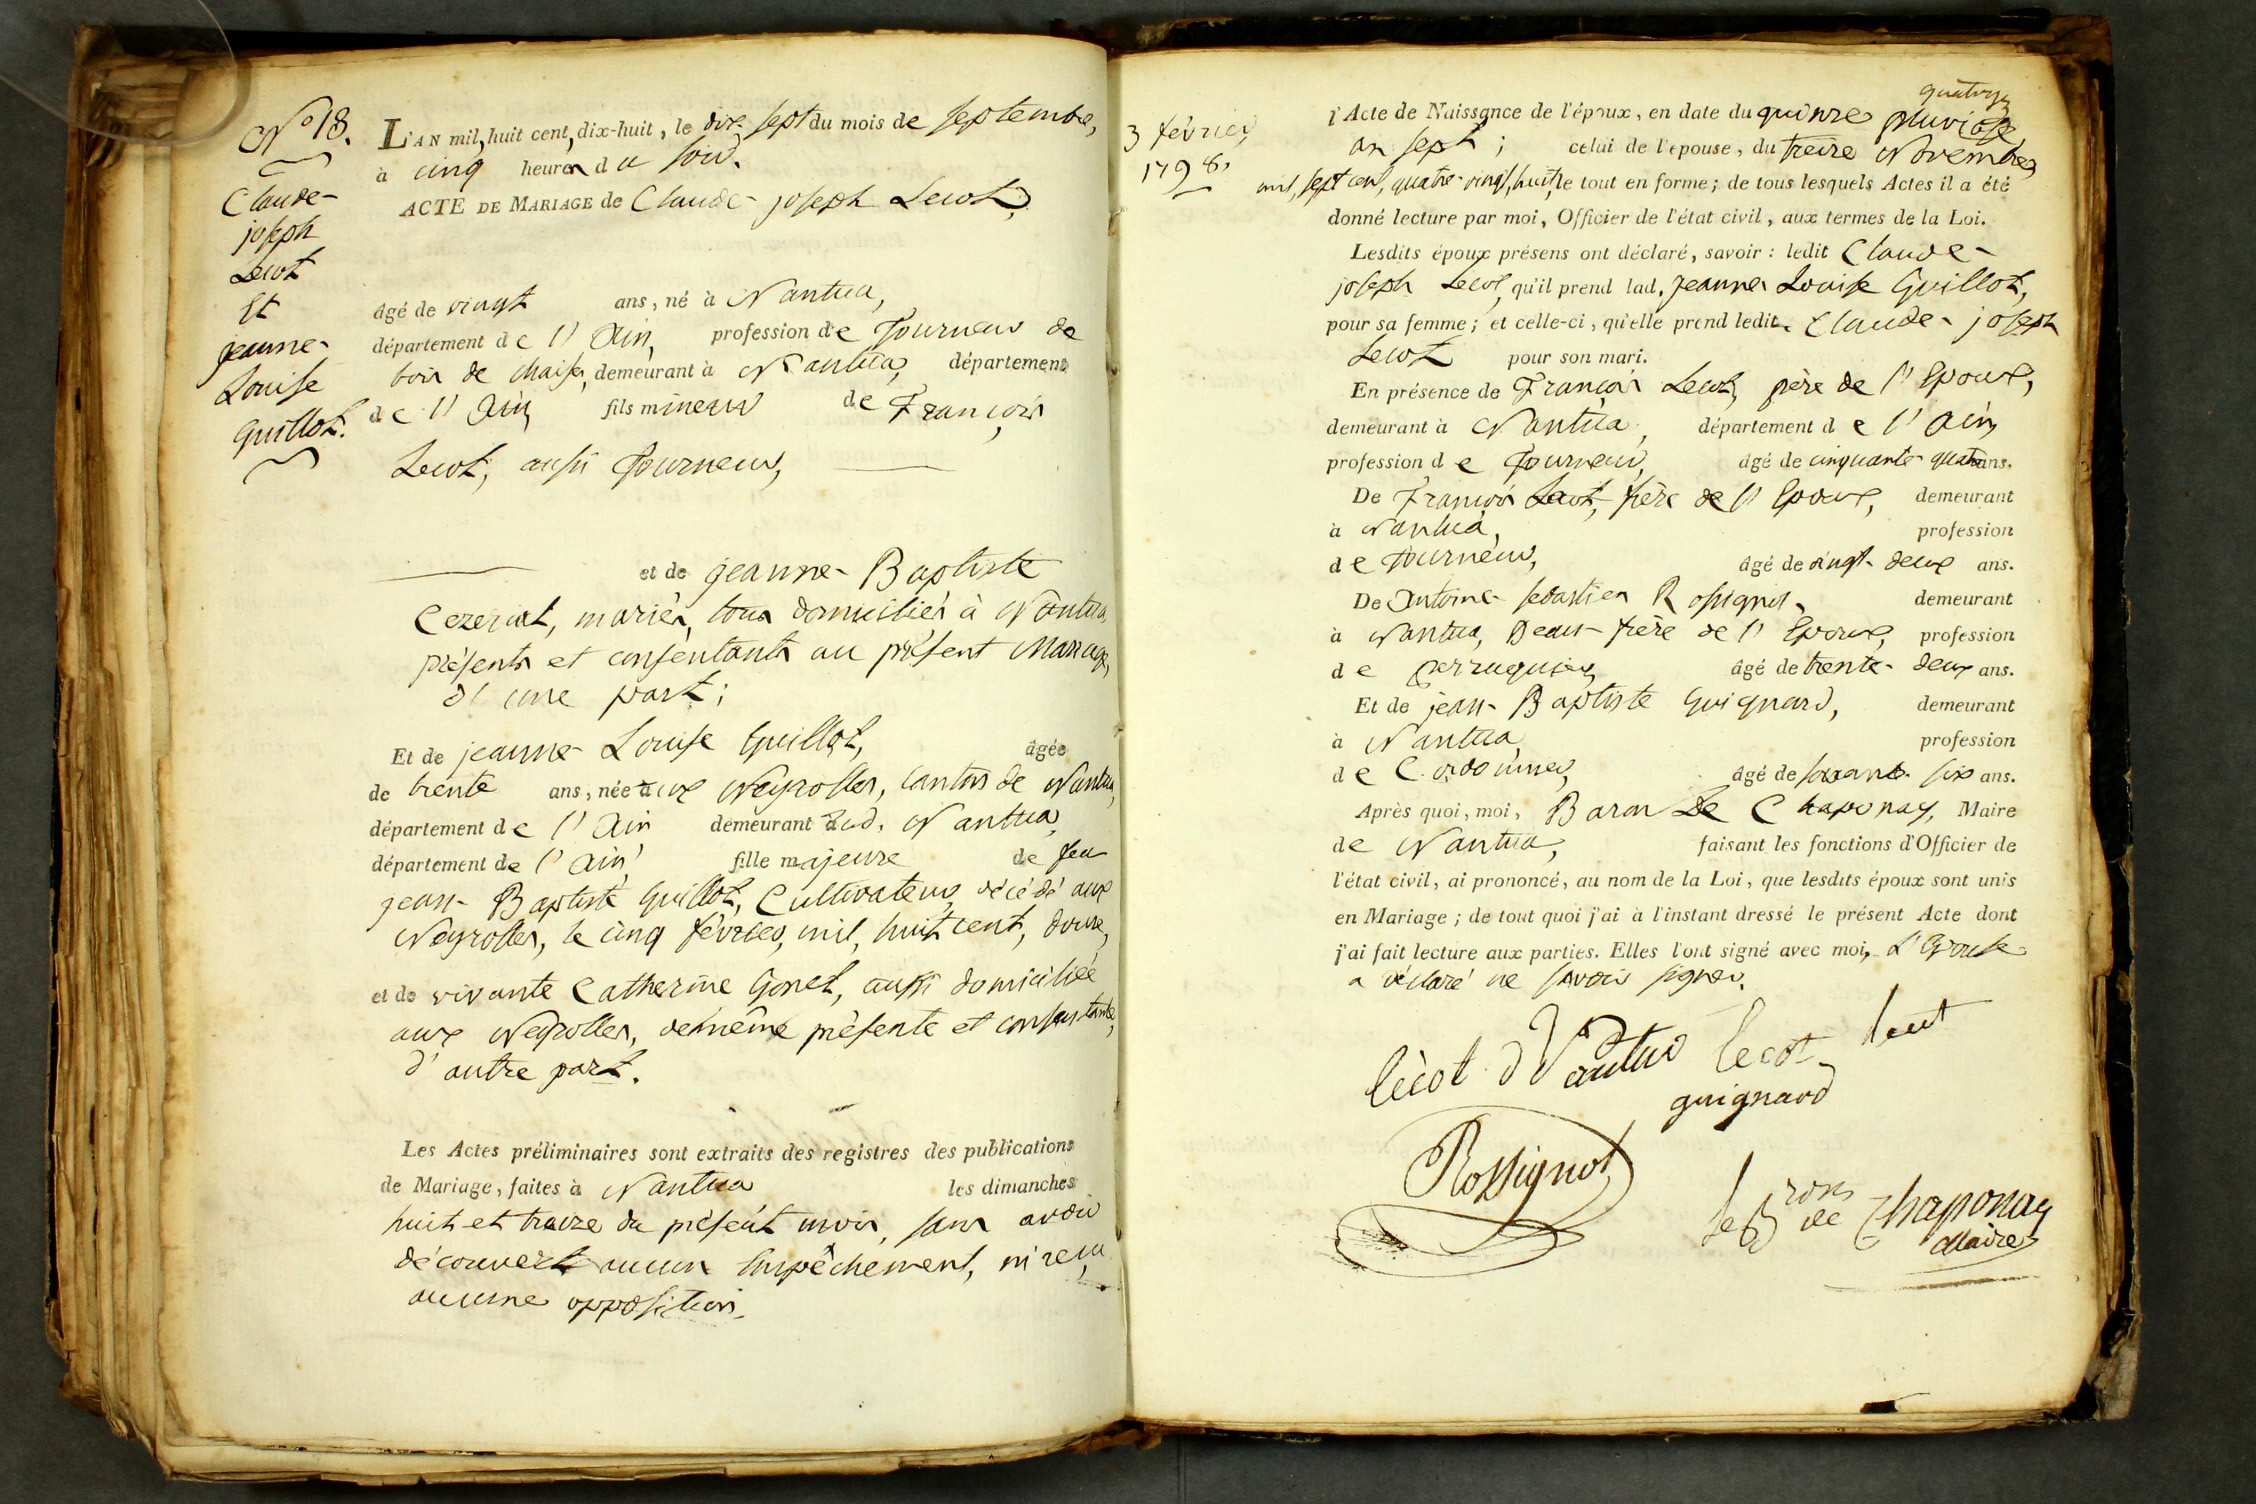 N.° 18.
Claude-
joseph
Lecot
Et
jeanne-
Louise
Guillot.
L'AN mil, huit cent, dix-huit, le dix sept du mois de septembre,
à cinq heures du soir.
ACTE DE MARIAGE de Claude-joseph Lecot,
âgé de vingt ans, né à Nantua,
département de l'Ain, profession de Tourneur de
bois de chaises, demeurant à Nantua, département
de l'Ain, fils mineur de François
Lecot, aussi Tourneur,
et de jeanne-Baptiste
mariés, tous domiciliés à Nantua,
présents et consentants au présent Mariage,
d'une part;
Et de jeanne-Louise Guillot, âgée
de trente ans, née aux Neyrolles, Canton de Nantua,
département de l'Ain demeurant aud. Nantua,
département de l'Ain, fille majeure de feu
jean-Baptiste Guillot, Cultivateur, décédé aux
Neyrolles, le cinq février, mil, huit cent, douze,
et de vivante Catherine Gonet, aussi domiciliée
aux Neyrolles, de même présente et consentante,
d'autre part.
Les Actes préliminaires sont extraits des registres des publications
de Mariage, faites à Nantua les dimanches
huit et treize du présent mois, sans avoir
découvert aucun Empêchement, ni reçu
aucune opposition.
3 février
1798.
quatorze
l'Acte de Naissance de l'époux, en date du quinze pluviôse
an sept; celui de l'épouse, du treize Novembre
mil, sept cent, quatre-vingt, huit, le tout en forme; de tous lesquels Actes il a été
donné lecture par moi, Officier de l'état civil, aux termes de la Loi.
Lesdits époux présens ont déclaré, savoir: ledit Claude-
joseph Lecot, qu'il prend lad. jeanne Louise Guillot,
pour sa femme; et celle-ci, qu'elle prend ledit Claude-joseph
Lecot pour son mari.
En présence de François Lecot, père de l'Epoux,
demeurant à Nantua, département de l'Ain,
profession de Tourneur, âgé de cinquante-quatre ans.
De François Lecot, frère de l'Epoux, demeurant
à Nantua, profession
de Tourneur, âgé de vingt-deux ans.
De Antoine Sebastien Rossignol, demeurant
à Nantua, Beau-frère de l'Epoux, profession
de perruquier, âgé de trente-deux ans.
Et de jean-Baptiste Guignard, demeurant
à Nantua, profession
de Cordonnier, âgé de soixante-six ans.
Après quoi, moi, Baron De Chaponay, Maire
de Nantua, faisant les fonctions d'Officier de
l'état civil, ai prononcé, au nom de la Loi, que lesdits époux sont unis
en Mariage; de tout quoi j'ai à l'instant dressé le présent Acte dont
j'ai fait lecture aux parties. Elles l'ont signé avec moi, L'Epouse
a déclaré ne savoir signer.
lecot lecot
guignard
Rossignol
le Bron de Chaponay
Maire